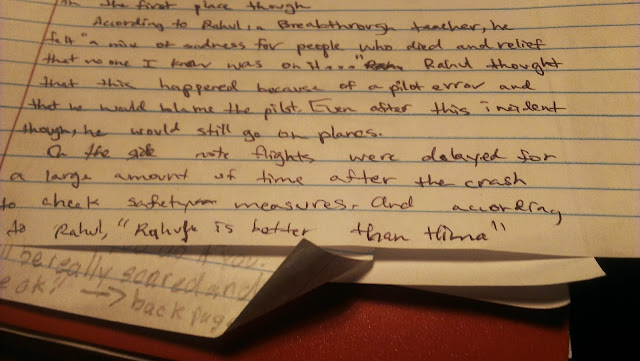 in the first place though
According to Rahul, a Breakthrough teacher, he
felt "a mix of sadness for people who died and relief
that no one I know was on it..." Rahul thought
that this happened because of a pilot error and
that he would blame the pilot. Even after this incident
though, he would still go on planes.
On the side note flights were delayed for
a large amount of time after the crash
to check safety measures. And according
to Rahul, " is better than Hima"
be really scared and
eak!" → back pag